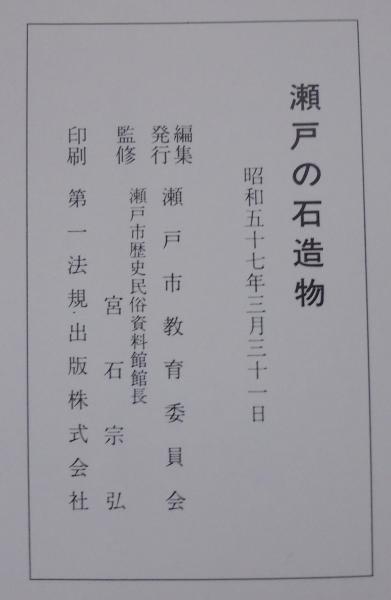 瀬戸の石造物
昭和五十七年三月三十一日
編集
発行
瀬戸市教育委員会
監修
瀬戸市歴史民俗資料館館長
宮石宗弘
印刷 第一法規出版株式会社